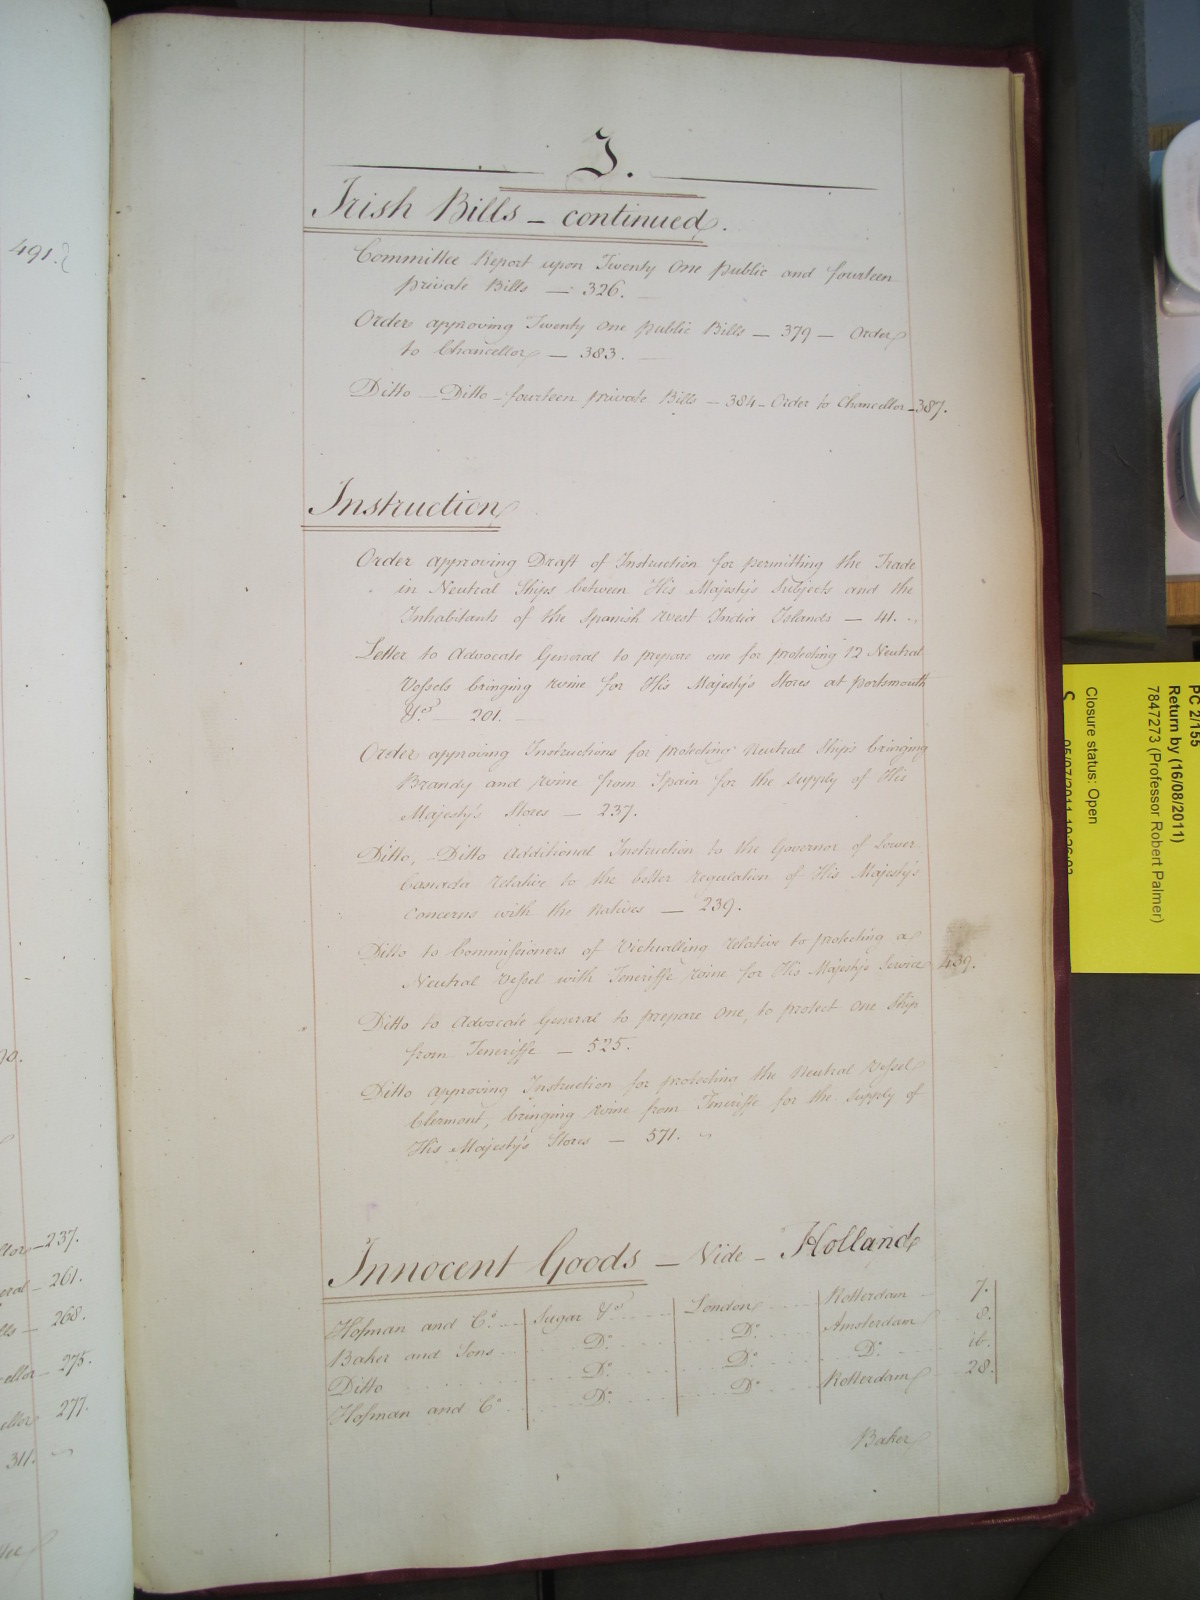 491.
I.
Irish Bills – continued.
Committee Report upon Twenty One public and fourteen
private Bills — 326.
Order approving Twenty One public Bills — 379 — Order
to Chancellor — 383.
Ditto — Ditto – fourteen private Bills – 384 – Order to Chancellor – 387.
Instruction
Order approving Draft of Instruction for permitting the Trade
in Neutral Ships between His Majesty's Subjects and the
Inhabitants of the Spanish West India Islands — 41.
Letter to Advocate General to prepare one for protecting 12 Neutral
Vessels bringing Wine for His Majesty's Stores at Portsmouth
&ca — 201.
Order approving Instructions for protecting Neutral Ships bringing
Brandy and Wine from Spain for the Supply of His
Majesty's Stores — 237.
Ditto, Ditto Additional Instruction to the Governor of Lower
Canada relative to the better Regulation of His Majesty's
Concerns with the Natives — 239.
Ditto to Commissioners of Victualling relative to protecting a
Neutral Vessel with Teneriffe Wine for His Majesty's Service 439.
Ditto to Advocate General to prepare one, to protect one Ship
from Teneriffe — 525.
Ditto approving Instruction for protecting the Neutral Vessel
Clermont, bringing Wine from Teneriffe for the Supply of
His Majesty's Stores — 571.
Innocent Goods – Vide – Holland
Hofman and Co. Sugar &ca London Rotterdam 7.
Baker and Sons Do. Do. Amsterdam 8.
Ditto Do. Do. Do. ib.
Hofman and Co Do. Do Rotterdam 28.
Baker
237.
261.
268.
275.
277.
311.
PC 2/155
Return by (16/08/2011)
7847273 (Professor Robert Palmer)
Closure status: Open